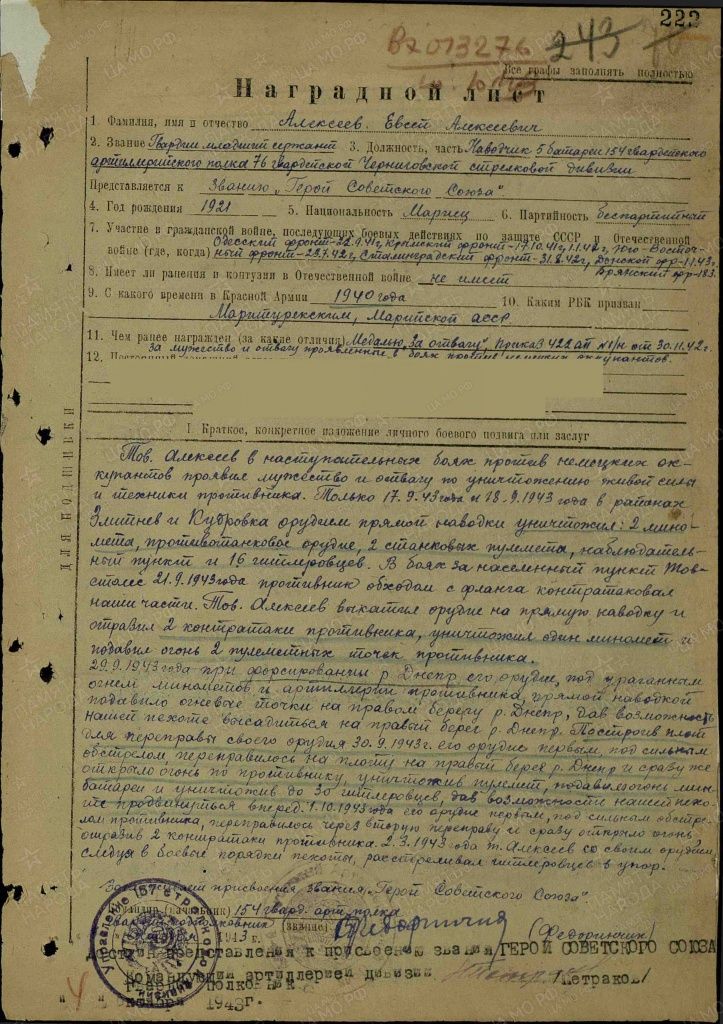 223
Вх 013276 243
Все графы заполнять полностью
Наградной лист
1. Фамилия, имя и отчество Алексеев Евсей Алексеевич
2. Звание Гвардии младший сержант 3. Должность, часть Наводчик 5 батареи 154 гвардейского
артиллерийского полка 76 гвардейской Черниговской стрелковой дивизии
Представляется к Званию „Герой Советского Союза"
4. Год рождения 1921 5. Национальность Мариец 6. Партийность беспартийный
7. Участие в гражданской войне, последующих боевых действиях по защите СССР и Отечественной
войне (где, когда) Одесский фронт-22.9.41г, Крымский фронт-17.10.41г-1.1.42г, Юго-Восточ-
ный фронт-23.7.42г, Сталинградский фронт-31.8.42г, Донской фр-1.1.43г,
Брянский фр-
8. Имеет ли ранения и контузии в Отечественной войне не имеет
9. С какого времени в Красной Армии 1940 года 10. Каким РВК призван
Маритурекским, Марийской АССР
11. Чем ранее награжден (за какие отличия) Медалью „За отвагу", приказ 422 ап №1/н от 30.11.42г.
за мужество и отвагу проявленные в боях против немецких оккупантов.
12.
I. Краткое, конкретное изложение личного боевого подвига или заслуг
Тов. Алексеев в наступательных боях против немецких ок-
купантов проявил мужество и отвагу по уничтожению живой силы
и техники противника. Только 17.9.43 года и 18.9.1943 года в районах
Змитнев и Кубровка орудием прямой наводки уничтожил: 2 мино-
мета, противотанковое орудие, 2 станковых пулемета, наблюдатель-
ный пункт и 16 гитлеровцев. В боях за населенный пункт Тов-
столес 21.9.1943 года противник обходом с фланга контратаковал
наши части. Тов. Алексеев выкатил орудие на прямую наводку и
отразил 2 контратаки противника, уничтожил один миномет и
подавил огонь 2 пулеметных точек противника.
29.9.1943 года при форсировании р. Днепр его орудие, под ураганным
огнем минометов и артиллерии противника, прямой наводкой
подавило огневые точки на правом берегу р. Днепр, дав возможность
нашей пехоте высадиться на правый берег р. Днепр. Построив плот
для переправы своего орудия 30.9.1943г. его орудие первым, под сильным
обстрелом переправилось на плоту на правый берег р. Днепр и сразу же
открыло огонь по противнику, уничтожив пулемет, подавил огонь мин-
батареи и уничтожив до 30 гитлеровцев, дав возможность нашей пехо-
те продвинуться вперед. 1.10.1943 года его орудие первым, под сильным обстре-
лом противника, переправилось через вторую переправу и сразу открыло огонь,
отразив 2 контратаки противника. 2.3.1943 года т. Алексеев со своим орудием
следуя в боевых порядках пехоты, расстреливал гитлеровцев в упор.
Заслуживает присвоения звания „Герой Советского Союза".
Командир (начальник) 154 гвард. арт. полка
Гвардии подполковник (звание) (Федоринчик)
1943 г.
Достоин представления к присвоению звания ГЕРОЙ СОВЕТСКОГО СОЮЗА
Командующий артиллерией дивизии
Гвардии полковник /Петраков/
" 4 " октября 1943г.
ДЛЯ ПОДШИВКИ